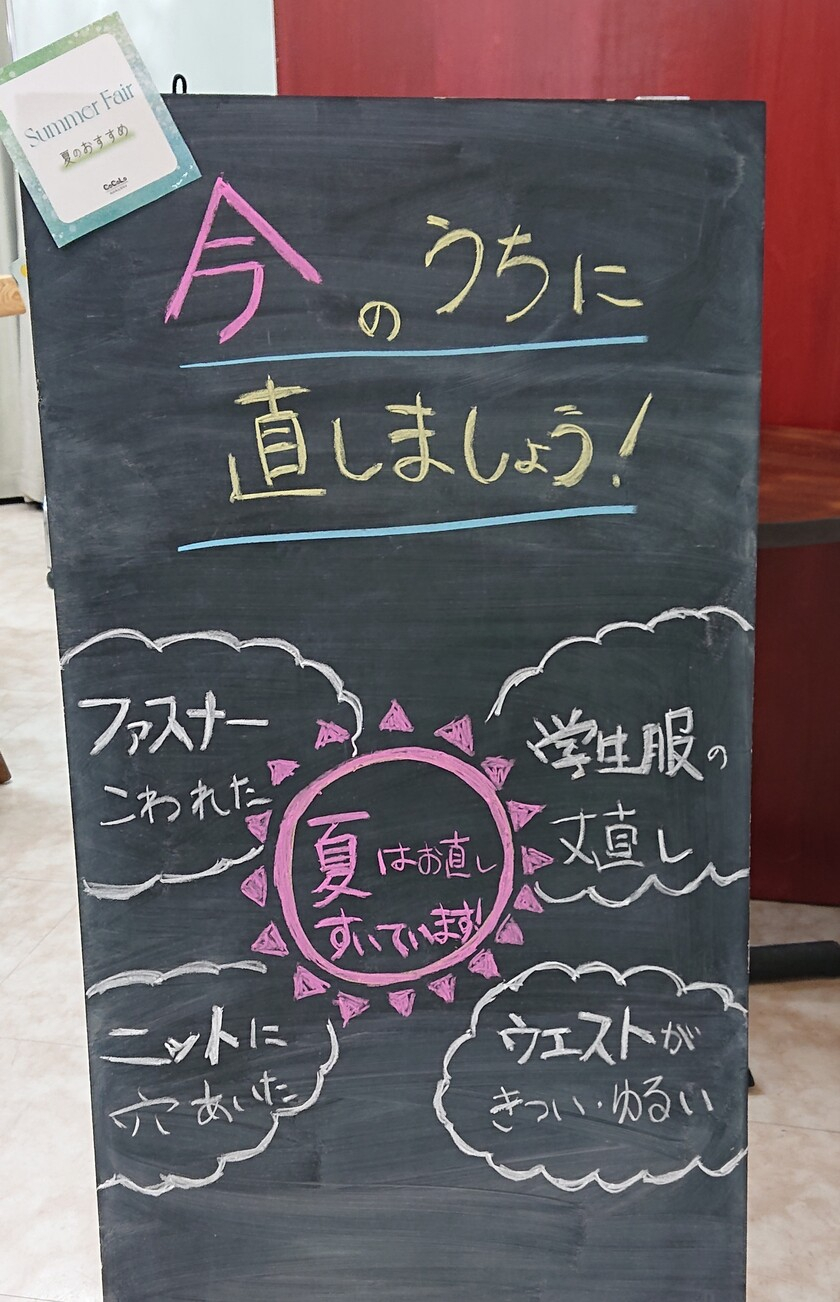 Summer Fair
夏のおすすめ
CoCoLo
今のうちに
直しましょう!
ファスナー
こわれた
学生服の
丈直し
夏はお直し
すいています!
ニットに
穴あいた
ウエストが
きつい・ゆるい